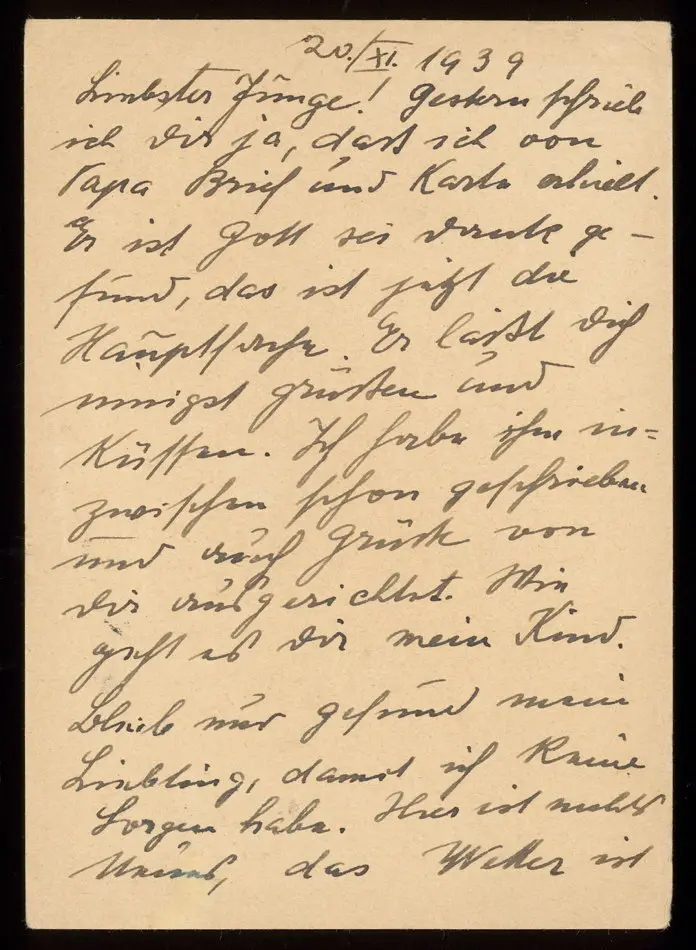 20./XI. 1939
Liebster Junge! Gestern schrieb
ich Dir ja, daß ich von
Papa Brief und Karte erhielt.
Er ist Gott sei Dank ge-
sund, das ist jetzt die
Hauptsache. Er läßt Dich
innigst grüßen und
küssen. Ich habe ihm in=
zwischen schon geschrieben
und auch Grüße von
Dir ausgerichtet. Wie
geht es Dir mein Kind.
Bleib nur gesund mein
Liebling, damit ich keine
Sorgen habe. Hier ist nichts
Neues, das Wetter ist